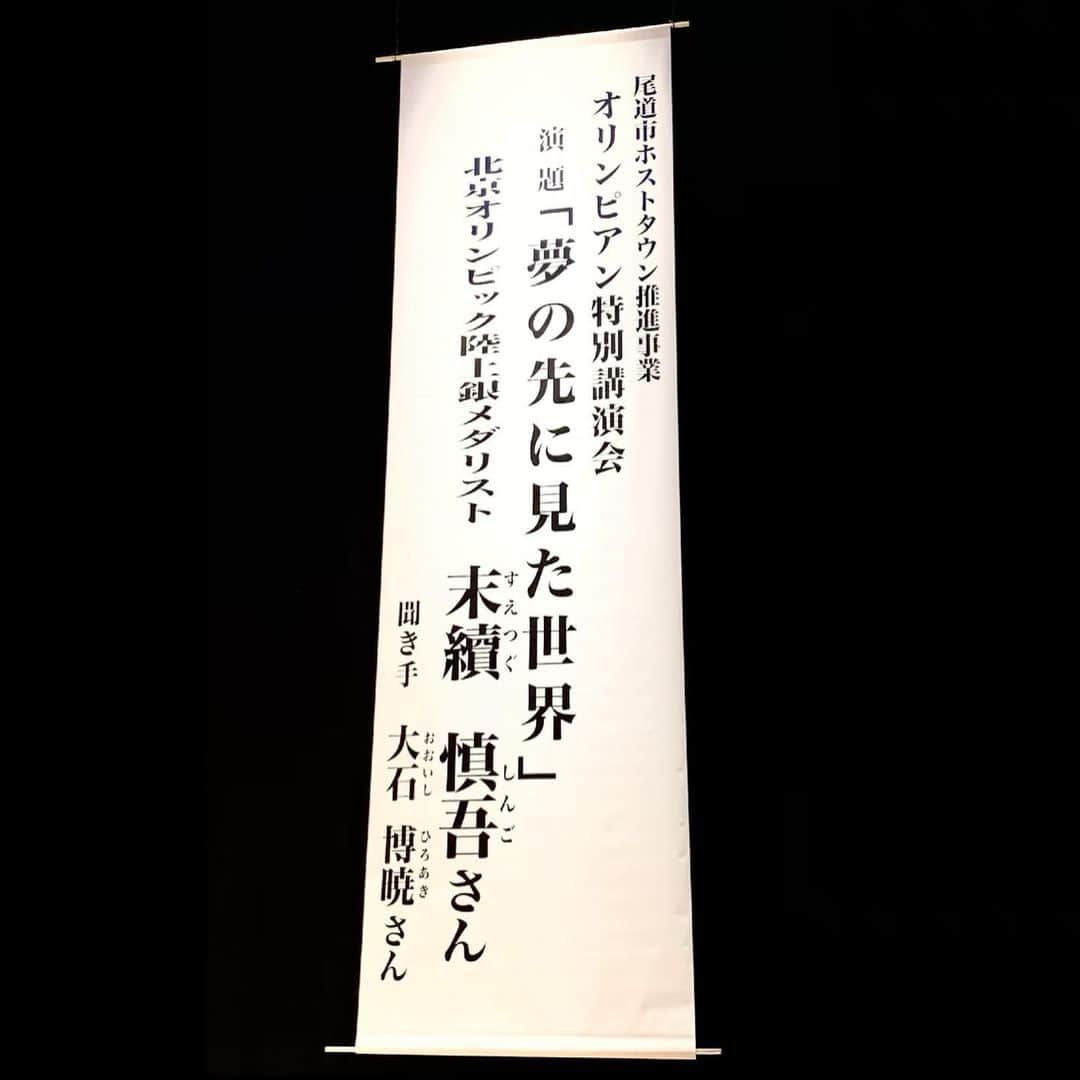 尾道市ホストタウン推進事業
オリンピアン特別講演会
演題「夢の先に見た世界」
北京オリンピック陸上銀メダリスト 末續 慎吾さん
すえつぐ しんご
聞き手 大石 博暁さん
おおいし ひろあき